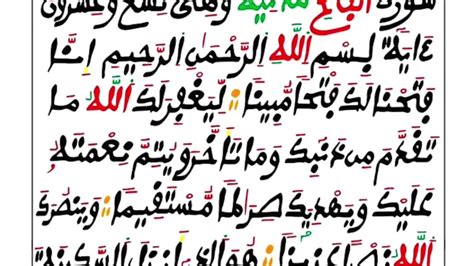 سورة الفتح مدنية وهي تسع وعشرون
ءاية بسم الله الرحمٰن الرحيم إنّا
فتحنا لك فتحا مّبينا ليغفر لك الله ما
تقدّم من ذنبك وما تأخّر ويتمّ نعمته
عليك ويهديك صراطا مّستقيما وينصرك
الله نصرا عزيزا هو الذي أنزل السّكينة